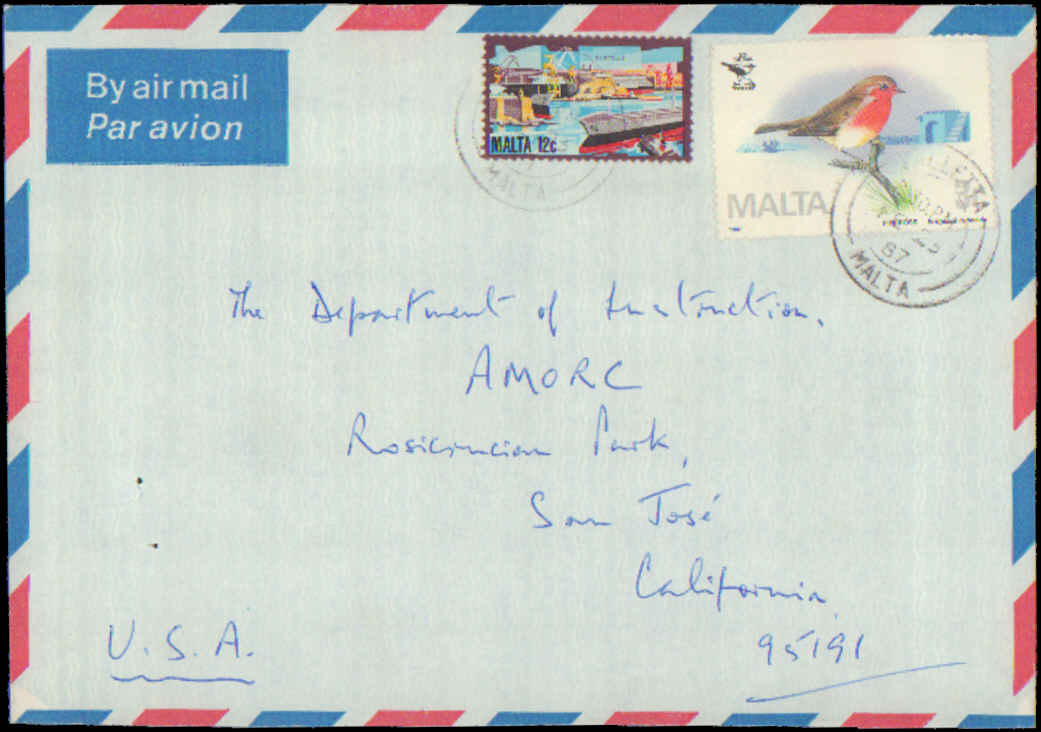 By air mail
Par avion
MALTA 12c
MALTA
MALTA
VALLETTA
PM
87
MALTA
The Department of Instruction,
AMORC
Rosicrucian Park,
San José
California
95191
U.S.A.